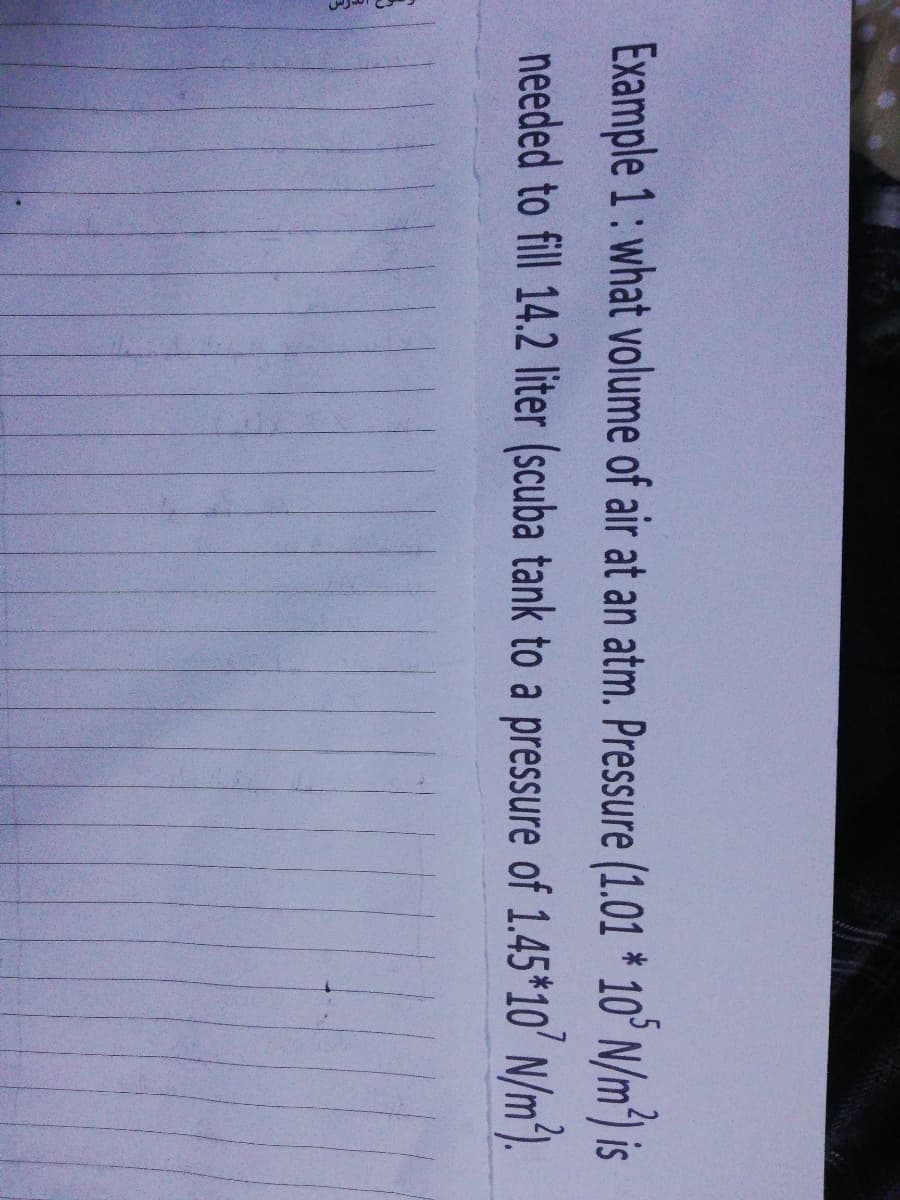 Example 1 : what volume of air at an atm. Pressure (1.01 * 10⁵ N/m²) is
needed to fill 14.2 liter (scuba tank to a pressure of 1.45*10⁷ N/m²).